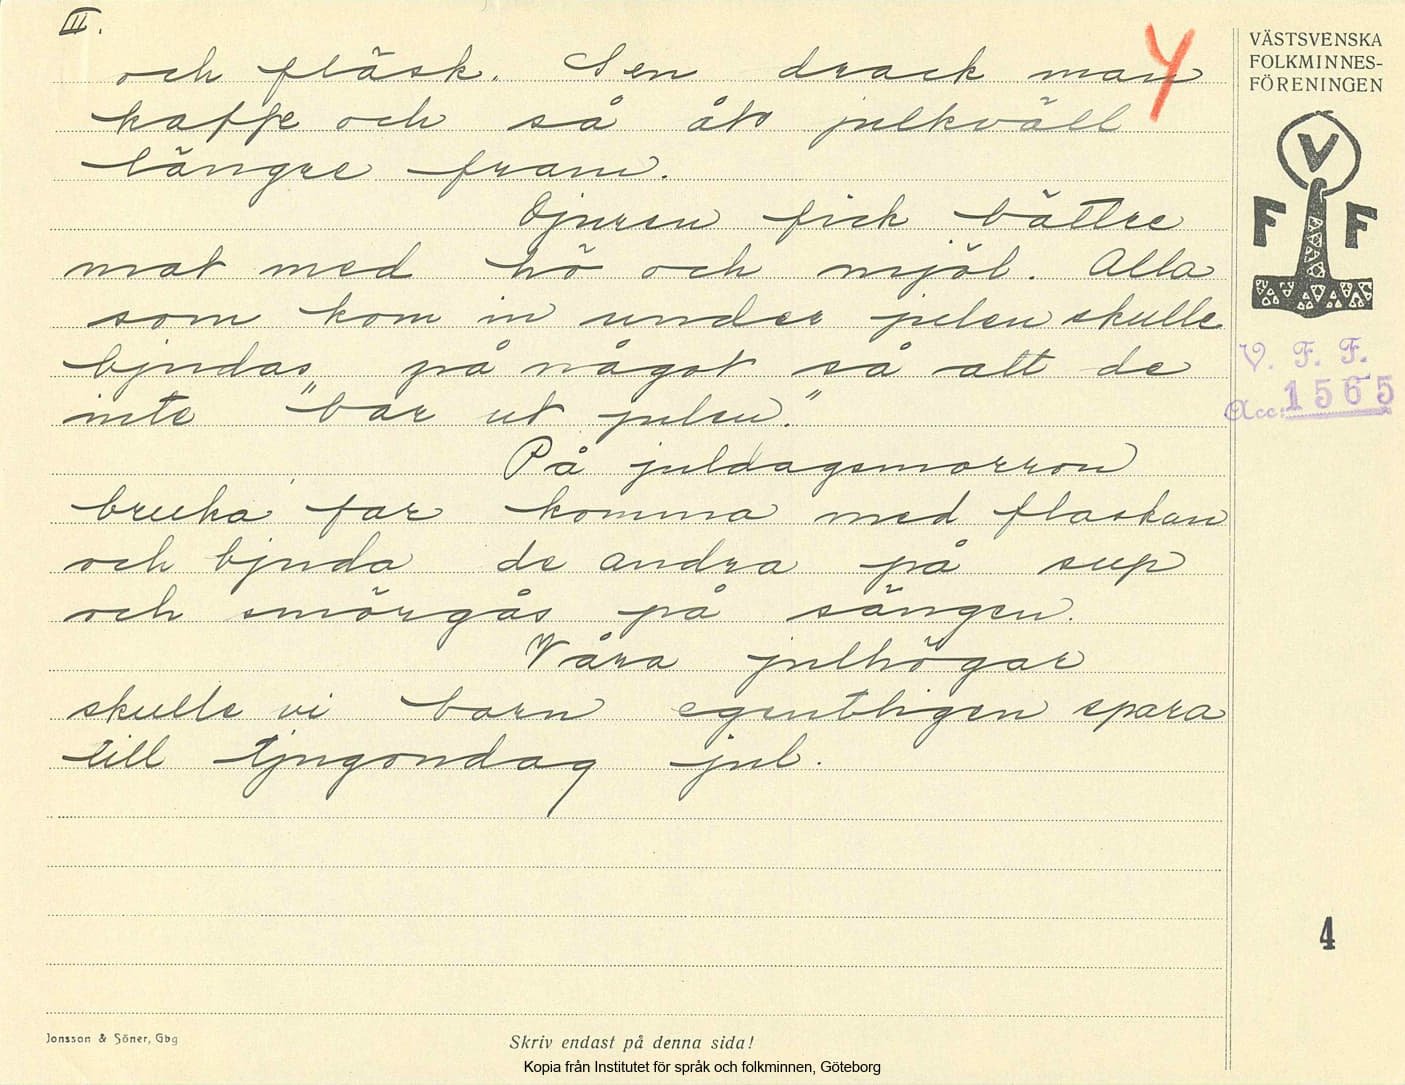 II.
och fläsk. Sen drack man
kaffe och så åts julkväll
längre fram.
Djuren fick bättre
mat med hö och mjöl. Alla
som kom in under julen skulle
bjudas på något så att de
inte "bar ut julen."
På juldagsmorron
bruka far komma med flaskan
och bjuda de andra på sup
och smörgås på sängen.
Våra julhögar
skulle vi barn egentligen spara
till tjugondag jul.
VÄSTSVENSKA
FOLKMINNES-
FÖRENINGEN
V
F F
V. F. F.
Acc: 1565
4
Jonsson & Söner, Gbg
Skriv endast på denna sida!
Kopia från Institutet för språk och folkminnen, Göteborg